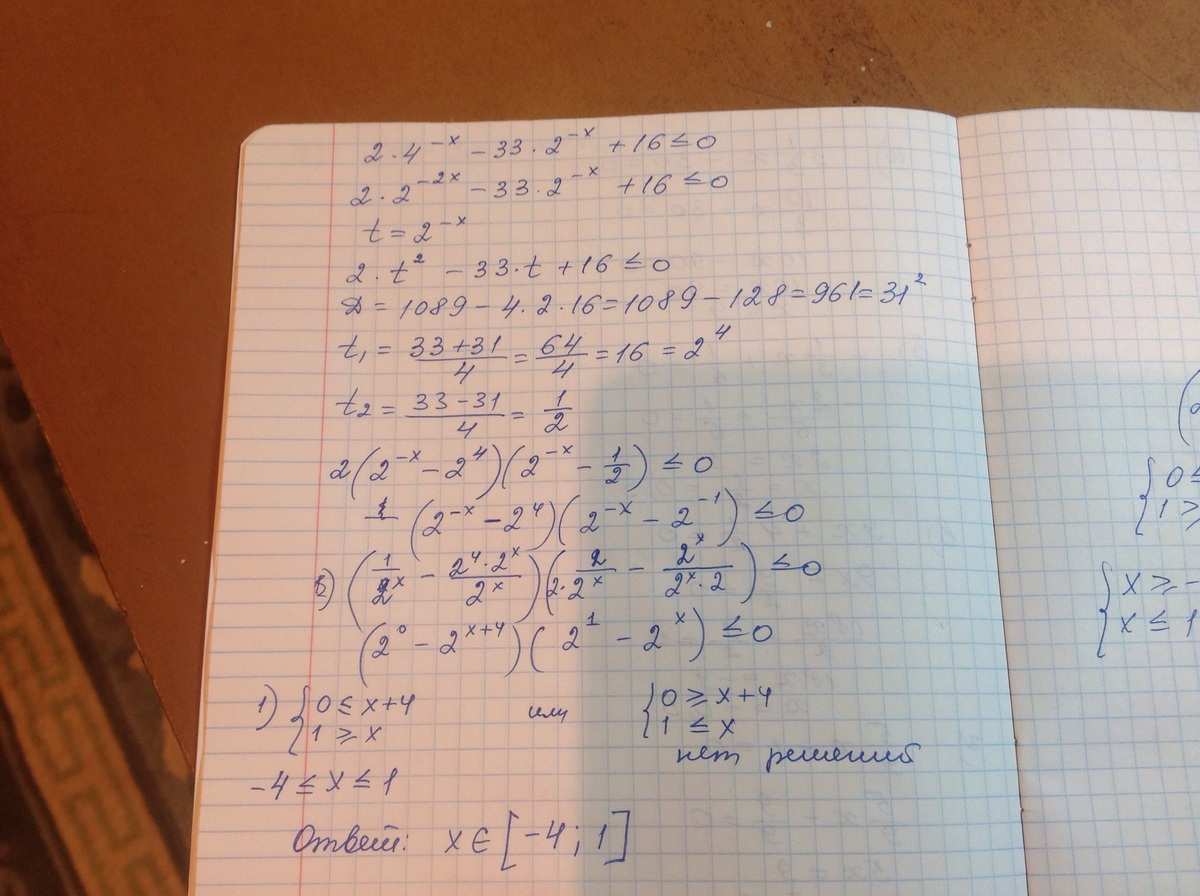 2·4^{-x} - 33·2^{-x} + 16 ≤ 0
2·2^{-2x} - 33·2^{-x} + 16 ≤ 0
t = 2^{-x}
2·t² - 33·t + 16 ≤ 0
D = 1089 - 4·2·16 = 1089 - 128 = 961 = 31²
t₁ = (33+31)/4 = 64/4 = 16 = 2⁴
t₂ = (33-31)/4 = 1/2
2(2^{-x} - 2⁴)(2^{-x} - 1/2) ≤ 0
(2^{-x} - 2⁴)(2^{-x} - 2^{-1}) ≤ 0
(1/2^x - 2⁴·2^x/2^x)(2/2·2^x - 2^x/2^x·2) ≤ 0
(2⁰ - 2^{x+4})(2¹ - 2^x) ≤ 0
1) { 0 ≤ x+4 или { 0 ≥ x+4
1 ≥ x 1 ≤ x
нет решений
-4 ≤ x ≤ 1
Ответ: x ∈ [-4; 1]
{ 0 ≤
1 ≥
{ x ≥ -
x ≤ 1